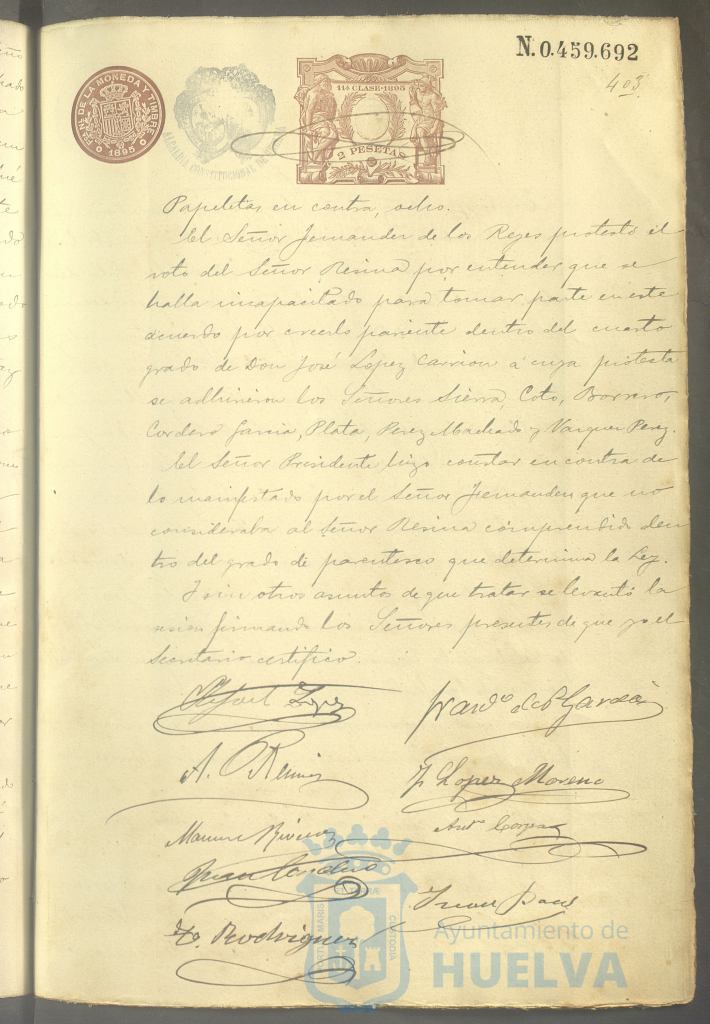 N.0.459.692
403
FÁB. NAL DE LA MONEDA Y TIMBRE
1895
ALCALDIA CONSTITUCIONAL DE
11ª CLASE·1895
2 PESETAS
Papeletas en contra, ocho.
El Señor Fernandez de los Reyes protestó el
voto del Señor Resina por entender que se
halla incapacitado para tomar parte en este
acuerdo por creerlo pariente dentro del cuarto
grado de Don José Lopez Carrion á cuya protesta
se adhirieron los Señores Sierra, Coto, Borrero,
Cordero Garcia, Plata, Perez Machado y Vazquez Perez.
El Señor Presidente hizo constar en contra de
lo manifestado por el Señor Fernandez que no
consideraba al Señor Resina comprendido den
tro del grado de parentesco que determina la Ley.
Y sin otros asuntos de que tratar se levantó la
sesion firmando los Señores presentes de que yo el
Secretario certifico.
Rafael Lopez
de P. Garcia
A. Resina
F. Lopez Moreno
Manuel
Antº
Juan Cordero
Juan
Rodriguez
PORTUS MARIS
CUSTODIA
Ayuntamiento de
HUELVA